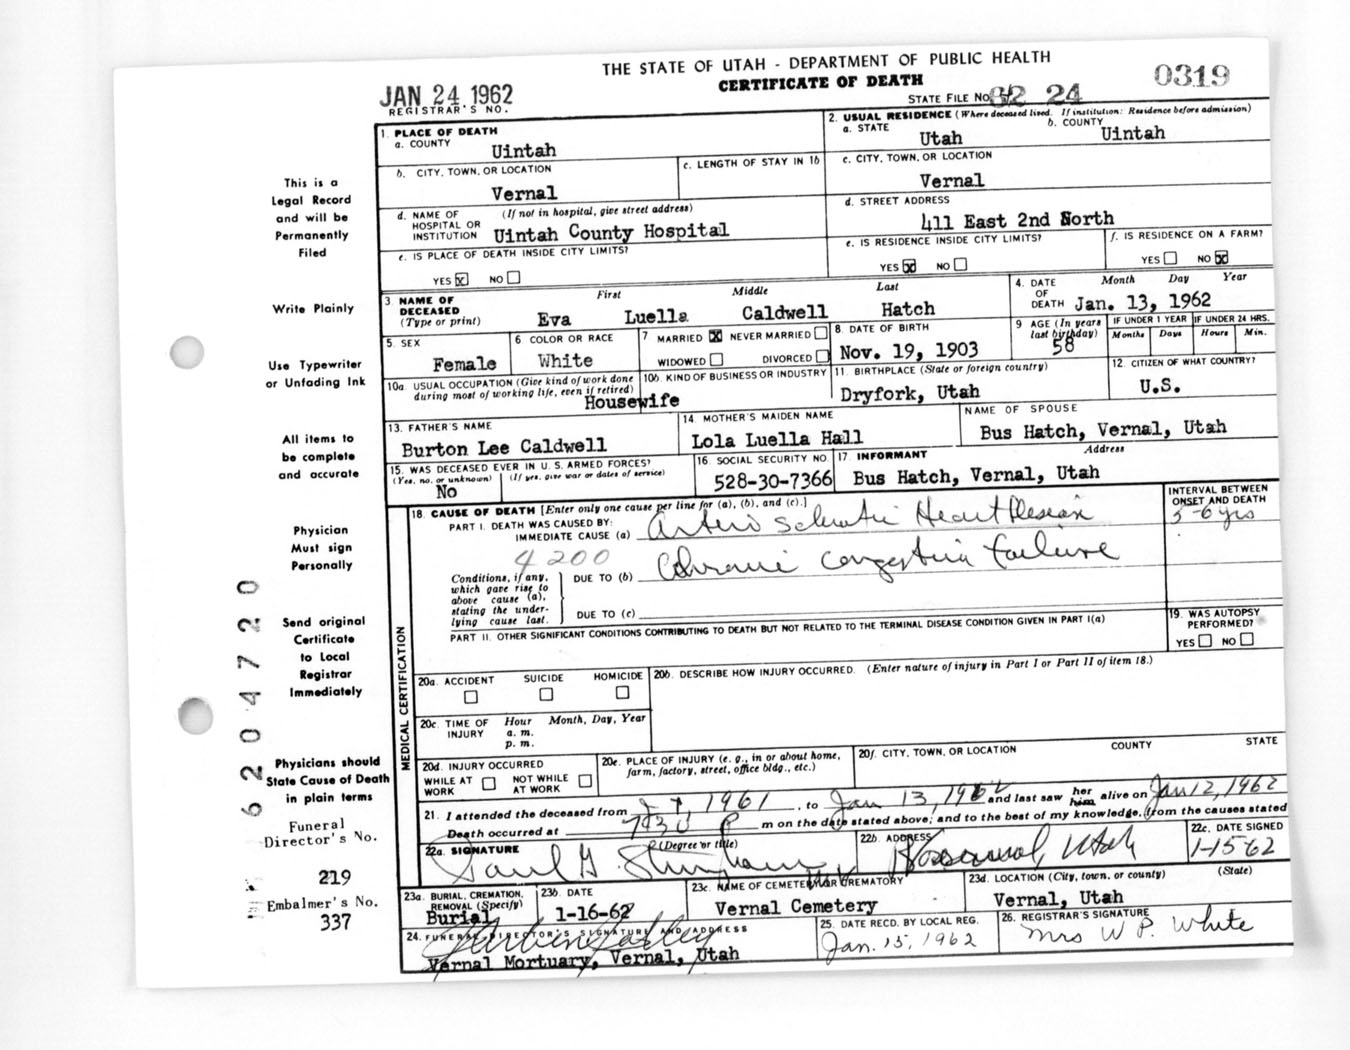 THE STATE OF UTAH - DEPARTMENT OF PUBLIC HEALTH
CERTIFICATE OF DEATH
0319
JAN 24 1962
REGISTRAR'S NO.
STATE FILE NO. 62 24
1. PLACE OF DEATH
a. COUNTY
Uintah
2. USUAL RESIDENCE (Where deceased lived. If institution: Residence before admission)
a. STATE
Utah
b. COUNTY
Uintah
b. CITY, TOWN, OR LOCATION
Vernal
c. LENGTH OF STAY IN 1b
c. CITY, TOWN, OR LOCATION
Vernal
d. NAME OF HOSPITAL OR INSTITUTION
(If not in hospital, give street address)
Uintah County Hospital
d. STREET ADDRESS
411 East 2nd North
e. IS PLACE OF DEATH INSIDE CITY LIMITS?
YES x NO
e. IS RESIDENCE INSIDE CITY LIMITS?
YES x NO
f. IS RESIDENCE ON A FARM?
YES NO x
3. NAME OF DECEASED
(Type or print)
First Middle Last
Eva Luella Caldwell Hatch
4. DATE OF DEATH
Month Day Year
Jan. 13, 1962
5. SEX
Female
6 COLOR OR RACE
White
7 MARRIED x NEVER MARRIED
WIDOWED DIVORCED
8. DATE OF BIRTH
Nov. 19, 1903
9 AGE (In years last birthday)
58
IF UNDER 1 YEAR
Months Days
IF UNDER 24 HRS.
Hours Min.
10a. USUAL OCCUPATION (Give kind of work done during most of working life, even if retired)
Housewife
10b. KIND OF BUSINESS OR INDUSTRY
11. BIRTHPLACE (State or foreign country)
Dryfork, Utah
12. CITIZEN OF WHAT COUNTRY?
U.S.
13. FATHER'S NAME
Burton Lee Caldwell
14. MOTHER'S MAIDEN NAME
Lola Luella Hall
NAME OF SPOUSE
Bus Hatch, Vernal, Utah
15. WAS DECEASED EVER IN U.S. ARMED FORCES?
(Yes, no, or unknown) (If yes, give war or dates of service)
No
16. SOCIAL SECURITY NO.
528-30-7366
17. INFORMANT Address
Bus Hatch, Vernal, Utah
18. CAUSE OF DEATH [Enter only one cause per line for (a), (b), and (c).]
PART I. DEATH WAS CAUSED BY:
IMMEDIATE CAUSE (a)
INTERVAL BETWEEN ONSET AND DEATH
5-6 yrs
4200
Conditions, if any, which gave rise to above cause (a), stating the underlying cause last.
DUE TO (b) congestive failure
DUE TO (c)
PART II. OTHER SIGNIFICANT CONDITIONS CONTRIBUTING TO DEATH BUT NOT RELATED TO THE TERMINAL DISEASE CONDITION GIVEN IN PART I(a)
19. WAS AUTOPSY PERFORMED?
YES NO
20a. ACCIDENT SUICIDE HOMICIDE
20b. DESCRIBE HOW INJURY OCCURRED. (Enter nature of injury in Part I or Part II of item 18.)
20c. TIME OF INJURY
Hour Month, Day, Year
a. m.
p. m.
20d. INJURY OCCURRED
WHILE AT WORK NOT WHILE AT WORK
20e. PLACE OF INJURY (e. g., in or about home, farm, factory, street, office bldg., etc.)
20f. CITY, TOWN, OR LOCATION COUNTY STATE
21. I attended the deceased from 1961, to Jan 13, 1962 and last saw her him alive on Jan 12, 1962
Death occurred at 730 P m on the date stated above; and to the best of my knowledge, from the causes stated
22a. SIGNATURE (Degree or title)
22b. ADDRESS
Utah
22c. DATE SIGNED
1-15-62
23a. BURIAL, CREMATION, REMOVAL (Specify)
Burial
23b. DATE
1-16-62
23c. NAME OF CEMETERY OR CREMATORY
Vernal Cemetery
23d. LOCATION (City, town, or county) (State)
Vernal, Utah
24. FUNERAL DIRECTOR'S SIGNATURE AND ADDRESS
Vernal Mortuary, Vernal, Utah
25. DATE RECD. BY LOCAL REG.
Jan. 15, 1962
26. REGISTRAR'S SIGNATURE
Mrs W P. White
MEDICAL CERTIFICATION
This is a
Legal Record
and will be
Permanently
Filed
Write Plainly
Use Typewriter
or Unfading Ink
All items to
be complete
and accurate
Physician
Must sign
Personally
Send original
Certificate
to Local
Registrar
Immediately
Physicians should
State Cause of Death
in plain terms
Funeral
Director's No.
219
Embalmer's No.
337
62 04720